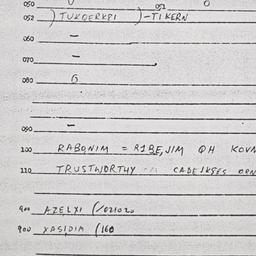 050
052 ) TUKQERKPI )-TIKERN
052
060 -
070 -
080 6
090 -
100 RABONIM = RIBE,JIM QH KOVN
110 TRUSTWORTHY CADEIKSES
900 AZELXI (/021020
900 XASIDIM (160